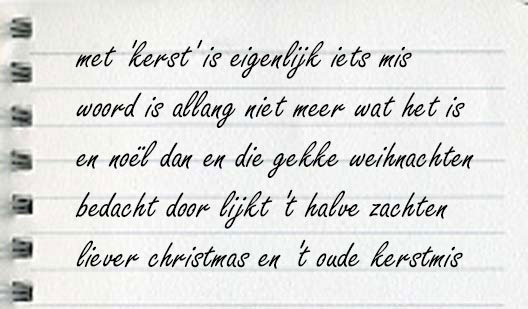 met 'kerst' is eigenlijk iets mis
woord is allang niet meer wat het is
en noël dan en die gekke weihnachten
bedacht door lijkt 't halve zachten
liever christmas en 't oude kerstmis